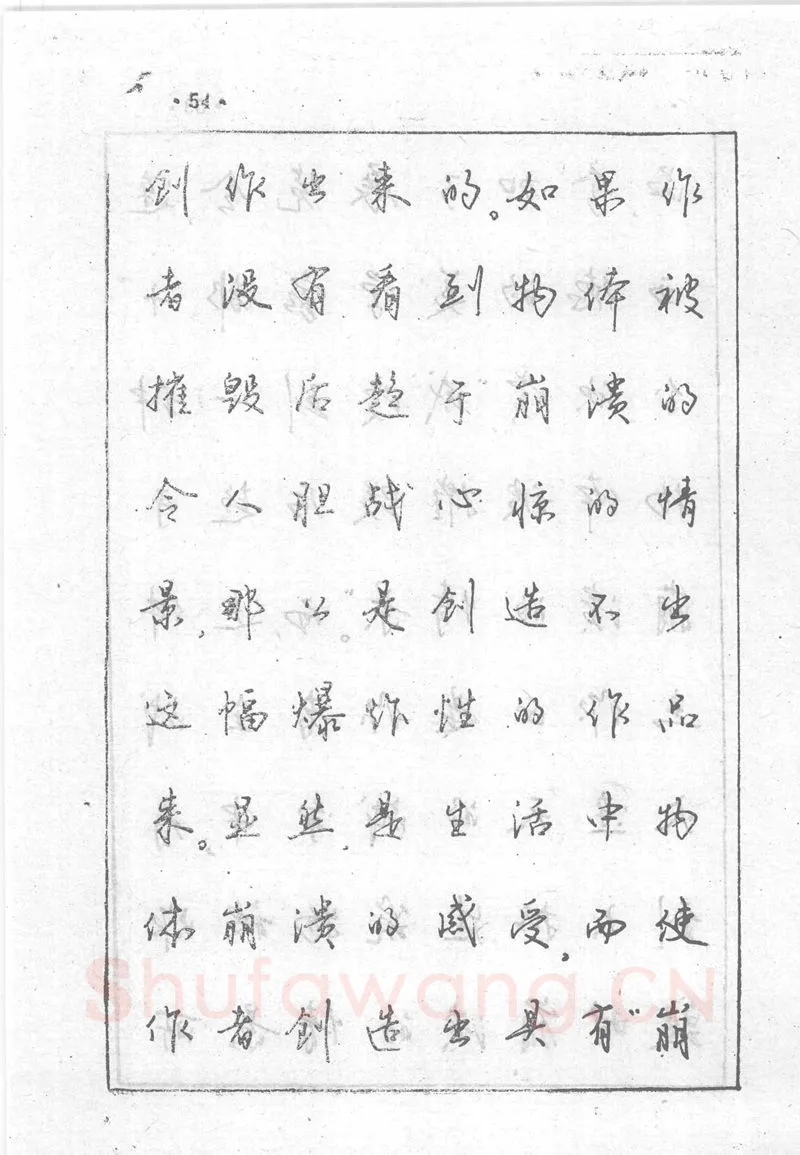 ·54·
创作出来的。如果作
者没有看到物体被
摧毁后趋于崩溃的
令人胆战心惊的情
景，那么是创造不出
这幅爆炸性的作品
来。显然，是生活中物
体崩溃的感受，而使
作者创造出具有“崩
Shufawang.CN